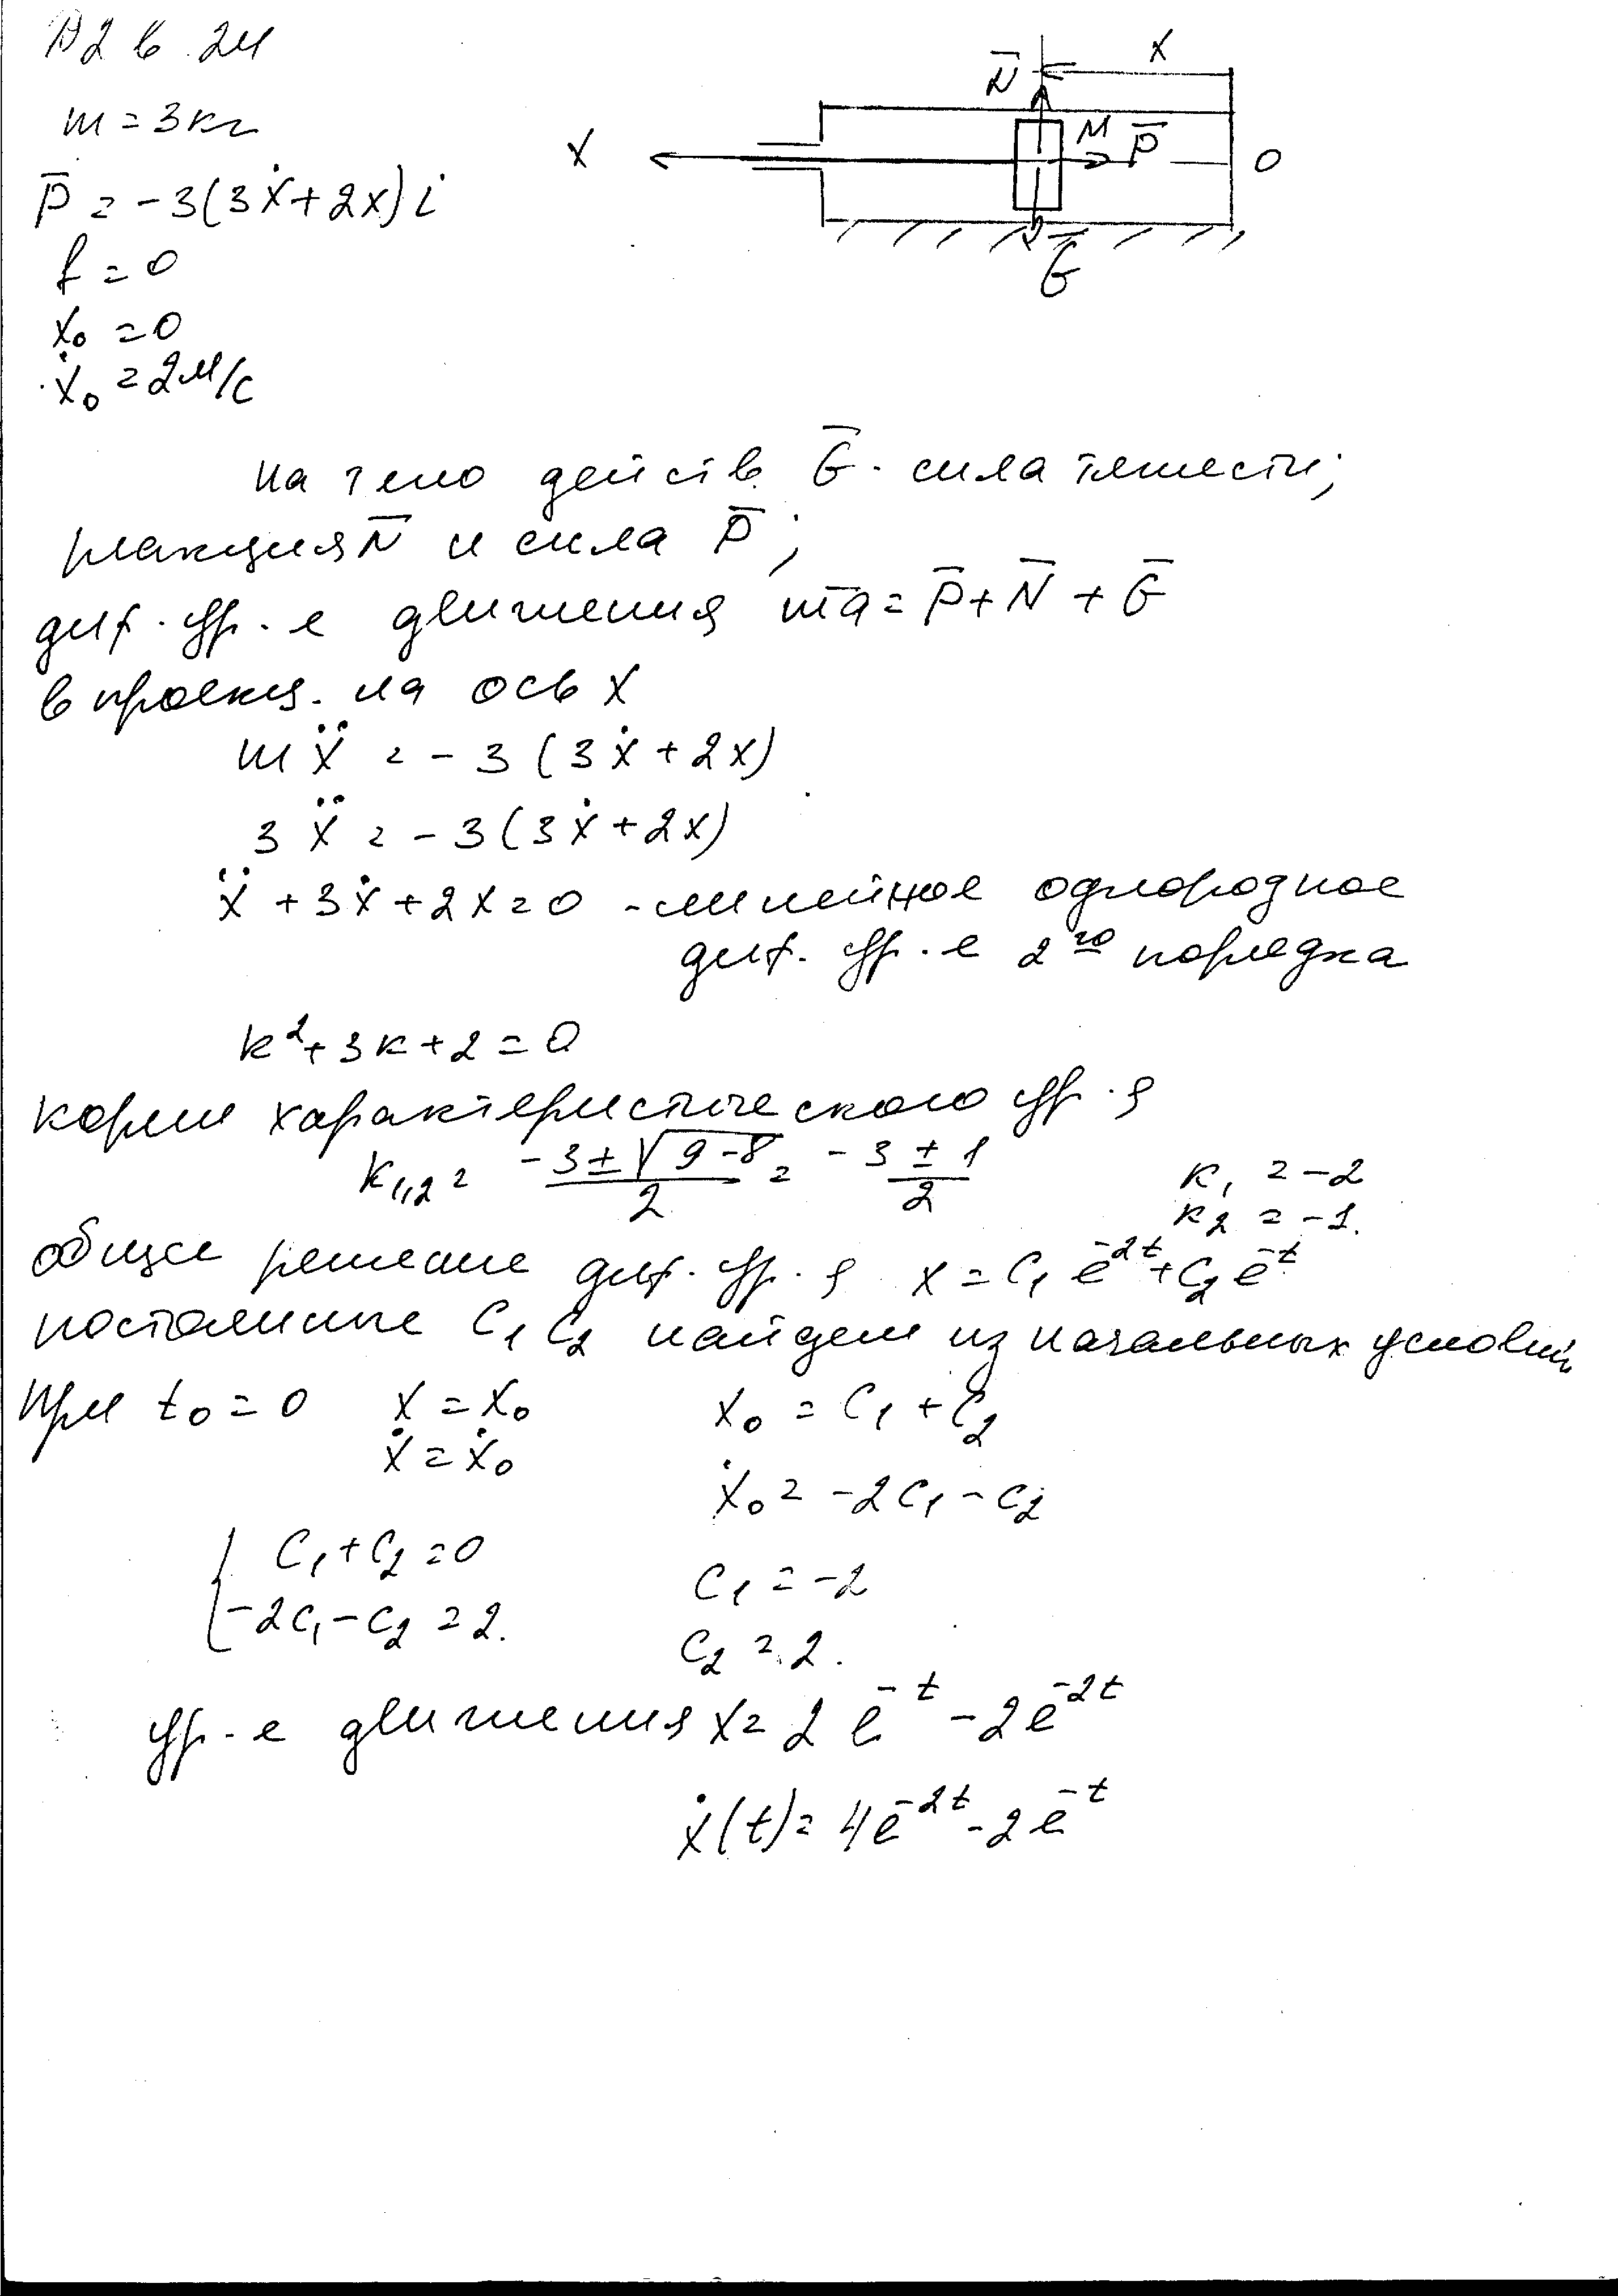 Д2 в. 24
m = 3кг
P̄ = -3(3ẋ + 2x) i
f = 0
x₀ = 0
ẋ₀ = 2 м/с
N̄
x
X
M
P̄
O
Ḡ
на тело действ. Ḡ - сила тяжести;
реакция N̄ и сила P̄;
диф. ур-е движения mā = P̄ + N̄ + Ḡ
в проекц. на ось X
mẍ = -3(3ẋ + 2x)
3ẍ = -3(3ẋ + 2x)
ẍ + 3ẋ + 2x = 0 - линейное однородное
диф. ур-е 2го порядка
k² + 3k + 2 = 0
корни характеристического ур-я
k₁,₂ = (-3 ± √(9-8))/2 = (-3 ± 1)/2
k₁ = -2
k₂ = -1.
общее решение диф. ур-я x = C₁e^(-2t) + C₂e^(-t)
постоянные C₁ C₂ найдем из начальных условий
при t₀ = 0 x = x₀ x₀ = C₁ + C₂
ẋ = ẋ₀ ẋ₀ = -2C₁ - C₂
{ C₁ + C₂ = 0
-2C₁ - C₂ = 2.
C₁ = -2
C₂ = 2.
ур-е движения x = 2e^(-t) - 2e^(-2t)
ẋ(t) = 4e^(-2t) - 2e^(-t)